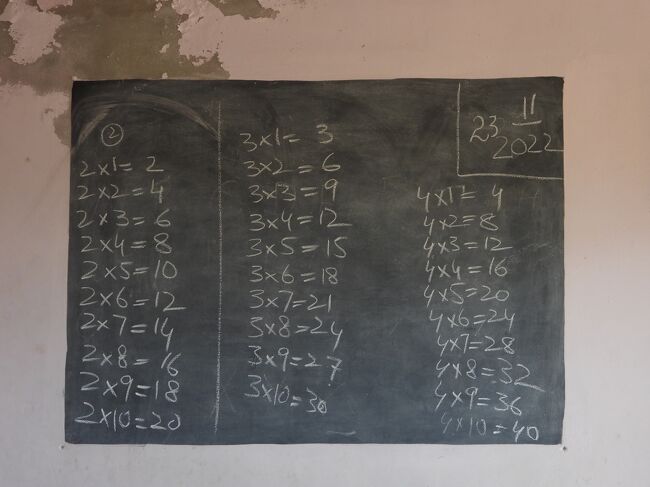 ②
2x1= 2
2x2=4
2x3=6
2x4=8
2x5=10
2x6=12
2x7=14
2x8=16
2x9=18
2x10=20
3x1= 3
3x2=6
3x3=9
3x4=12
3x5=15
3x6=18
3x7=21
3x8=24
3x9=27
3x10=30
23 11
2022
4x1= 4
4x2=8
4x3=12
4x4=16
4x5=20
4x6=24
4x7=28
4x8=32
4x9=36
4x10=40